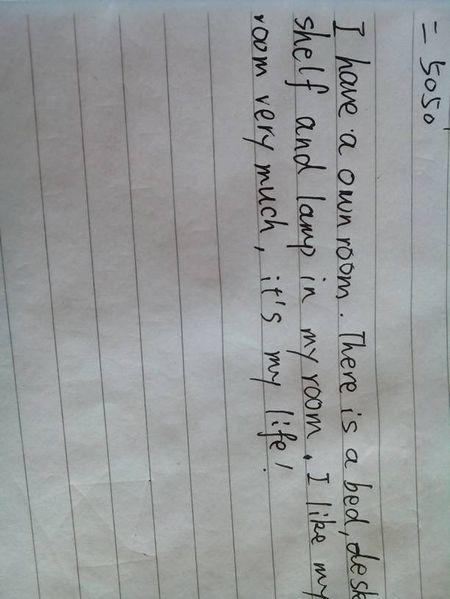 = 5050
I have a own room. There is a bed, desk
shelf and lamp in my room. I like my
room very much, it's my life!